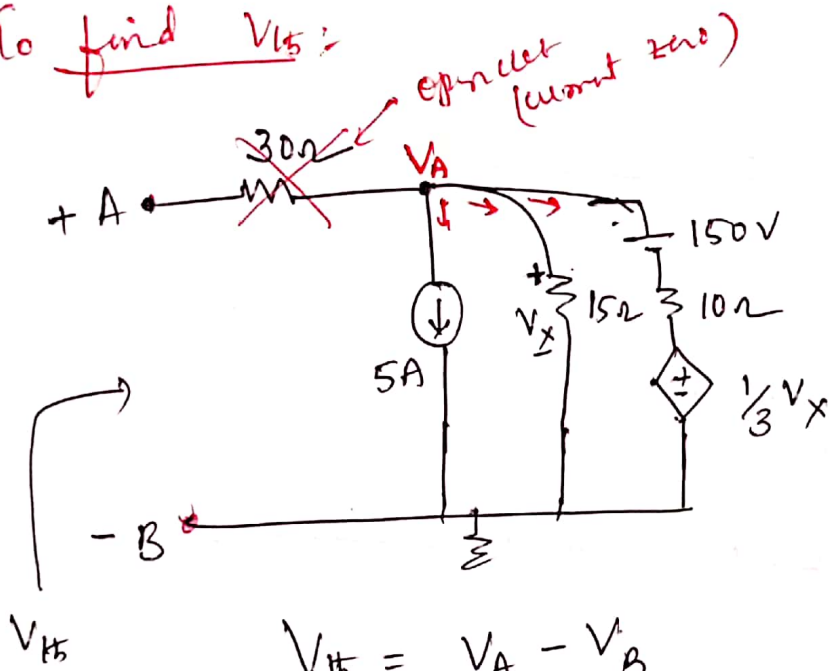 To find Vth :-
openckt
(current zero)
30Ω
VA
+ A
150V
+
Vx
-
15Ω
10Ω
5A
±
1/3 Vx
- B
Vth
Vth = VA - VB